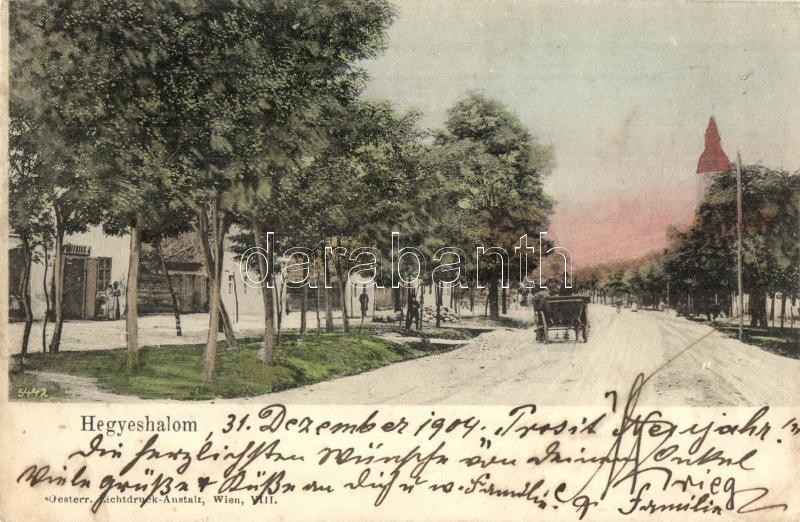 darabanth
5442
Hegyeshalom, 31. Dezember 1904. "Prosit Neujahr!"
Die herzlichsten Wünsche von deinem Onkel
Viele grüße & Küße an dich u w. Familie. Krieg
& Familie
Oesterr. Lichtdruck-Anstalt, Wien, VIII.